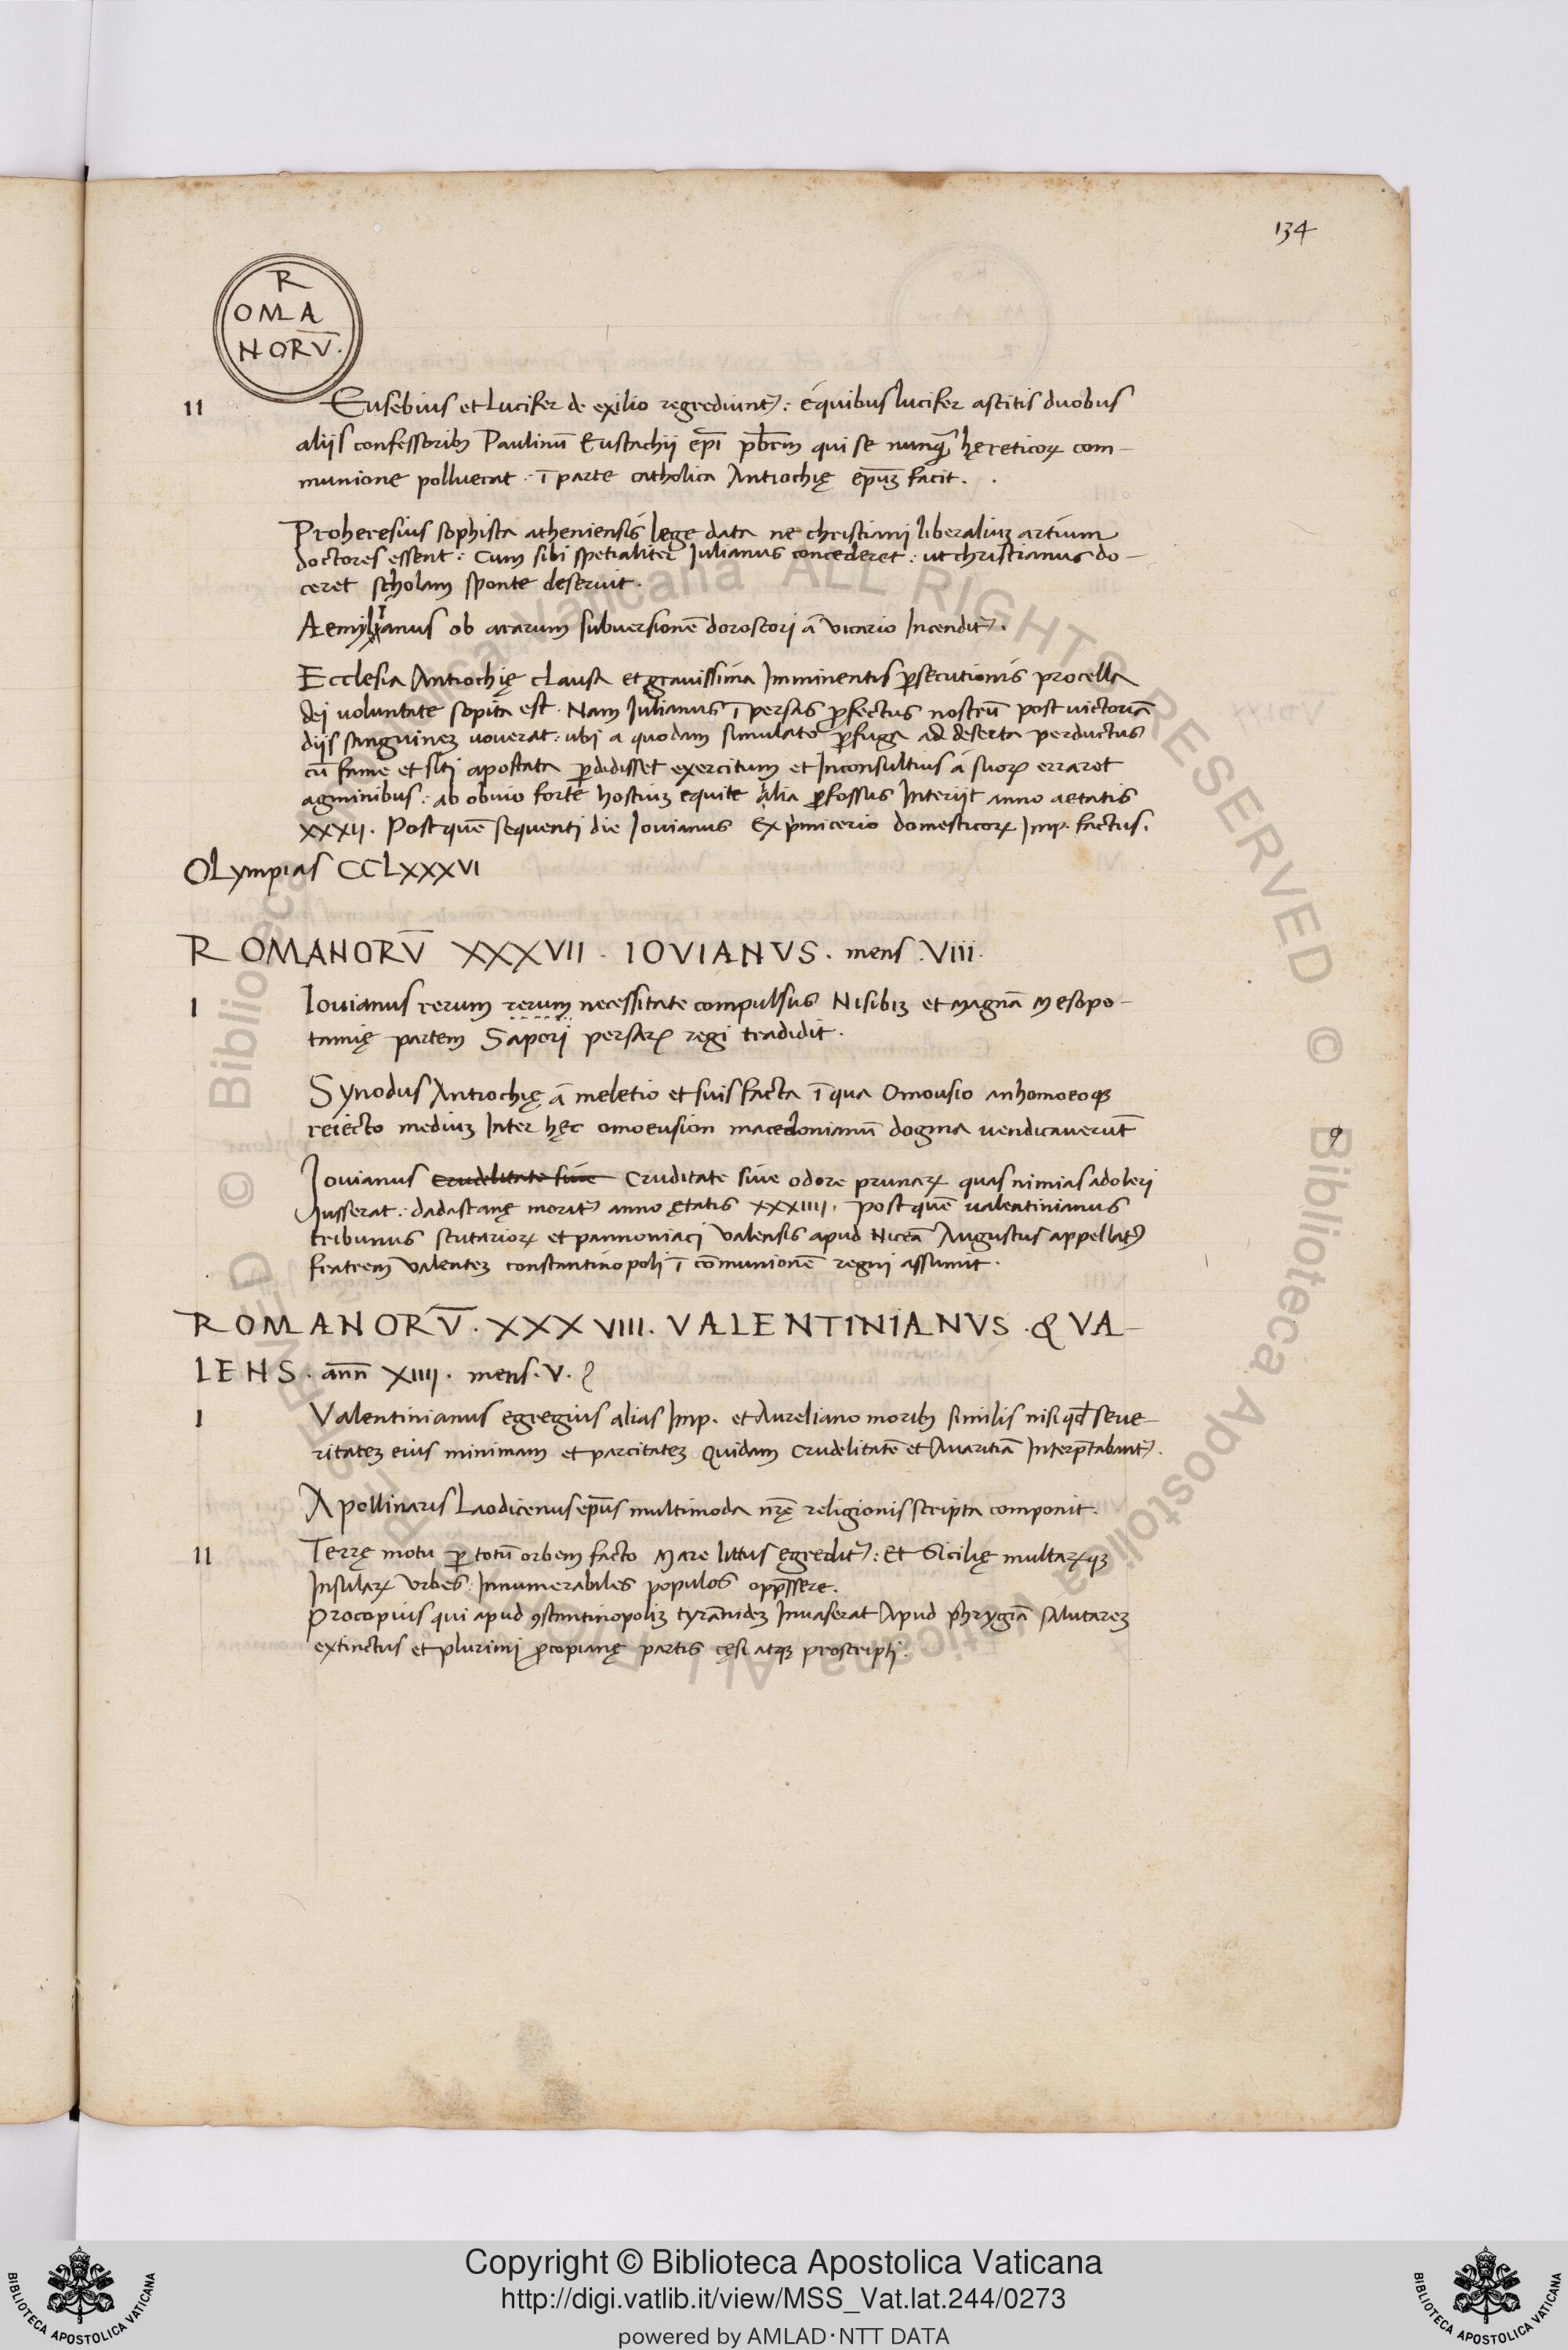 134
R
OMA
NORV̅.
II Eusebius et Lucifer de exilio regrediunt᷒: é quibus lucifer ascitis duobus
aliis confessoribꝫ Paulinū Eustachij ep̄i pb̄rm qui se nunq̄ hęreticoꝝ com-
munione polluerat: ī parte catholica Antiochię ep̄uꝫ facit.
Proheresius sophista atheniensis lege data ne christiani liberaliuꝫ artium
doctores essent: Cum sibi spetialiter Iulianus concederet: ut christianus do-
ceret scholam sponte deseruit.
Aemylianus ob ararum subuersionē dorostori ā vicario Incendit᷒.
Ecclesia Antiochię clausa et grauissima Imminentis ꝑsecutionis procella
dei voluntate sopita est. Nam Iulianus ī persas ꝓfectus nostrū post victoriā
diis sanguineꝫ uouerat: ubi a quodam simulato ꝑfuga ad deserta perductus
cū fame et siti apostata ꝑdidisset exercitum et Inconsultius á suoꝝ erraret
agminibus: ab obuio forte hostiuꝫ equite ilia ꝑfossus Interiit anno aetatis
XXXII. Post quē sequenti die Iouianus Ex p̄micerio domesticoꝝ Imp. factus.
OLympias CCLXXXVI
ROMANORV̅ XXXVII. IOVIANVS. mens. VIII.
I Iouianus rerum rerum necessitate compulsus Nisibiꝫ et magnā Mesopo-
tamię partem Sapori persaꝝ regi tradidit.
Synodus Antiochię ā meletio et suis facta ī qua Omousio anhomoeoqꝫ
reiecto mediuꝫ Inter hęc omoeusion macedonianū dogma uendicauerūt
Iouianus crudelitate siue cruditate siue odore prunaꝝ quas nimias adoleri
Iusserat: dadastanę morit᷒ anno ętatis XXXIIII. post quē ualentinianus
tribunus scutarioꝝ et pannoniaci valensis apud Niceā Augustus appellat᷒
fratrem valenteꝫ constantinopoli ī cōmunionē regni assumit.
ROMANORV̅. XXXVIII. VALENTINIANVS. & VA-
LENS. ann̄ XIIII. mens. V.
I Valentinianus egregius alias Imp. et Aureliano moribꝫ similis nisi qđ seue-
ritateꝫ eius minimam et parcitateꝫ Quidam crudelitatē et Auaritiā Interp̄tabant᷒.
Apollinaris Laodicenus ep̄us multimoda nr̄ę religionis scripta componit.
II Terrę motu ꝑ totū orbem facto Mare littus ęgredit᷒: Et Sicilię multaꝝqꝫ
Insulaꝝ Urbes: Innumerabiles populos opp̄ssere.
Procopius qui apud ꝯstantinopoliꝫ tyrānideꝫ Inuaserat Apud phrygiā salutareꝫ
extinctus et plurimi ꝓcopianę partis cęsi atqꝫ proscripti.
Copyright © Biblioteca Apostolica Vaticana
http://digi.vatlib.it/view/MSS_Vat.lat.244/0273
powered by AMLAD·NTT DATA